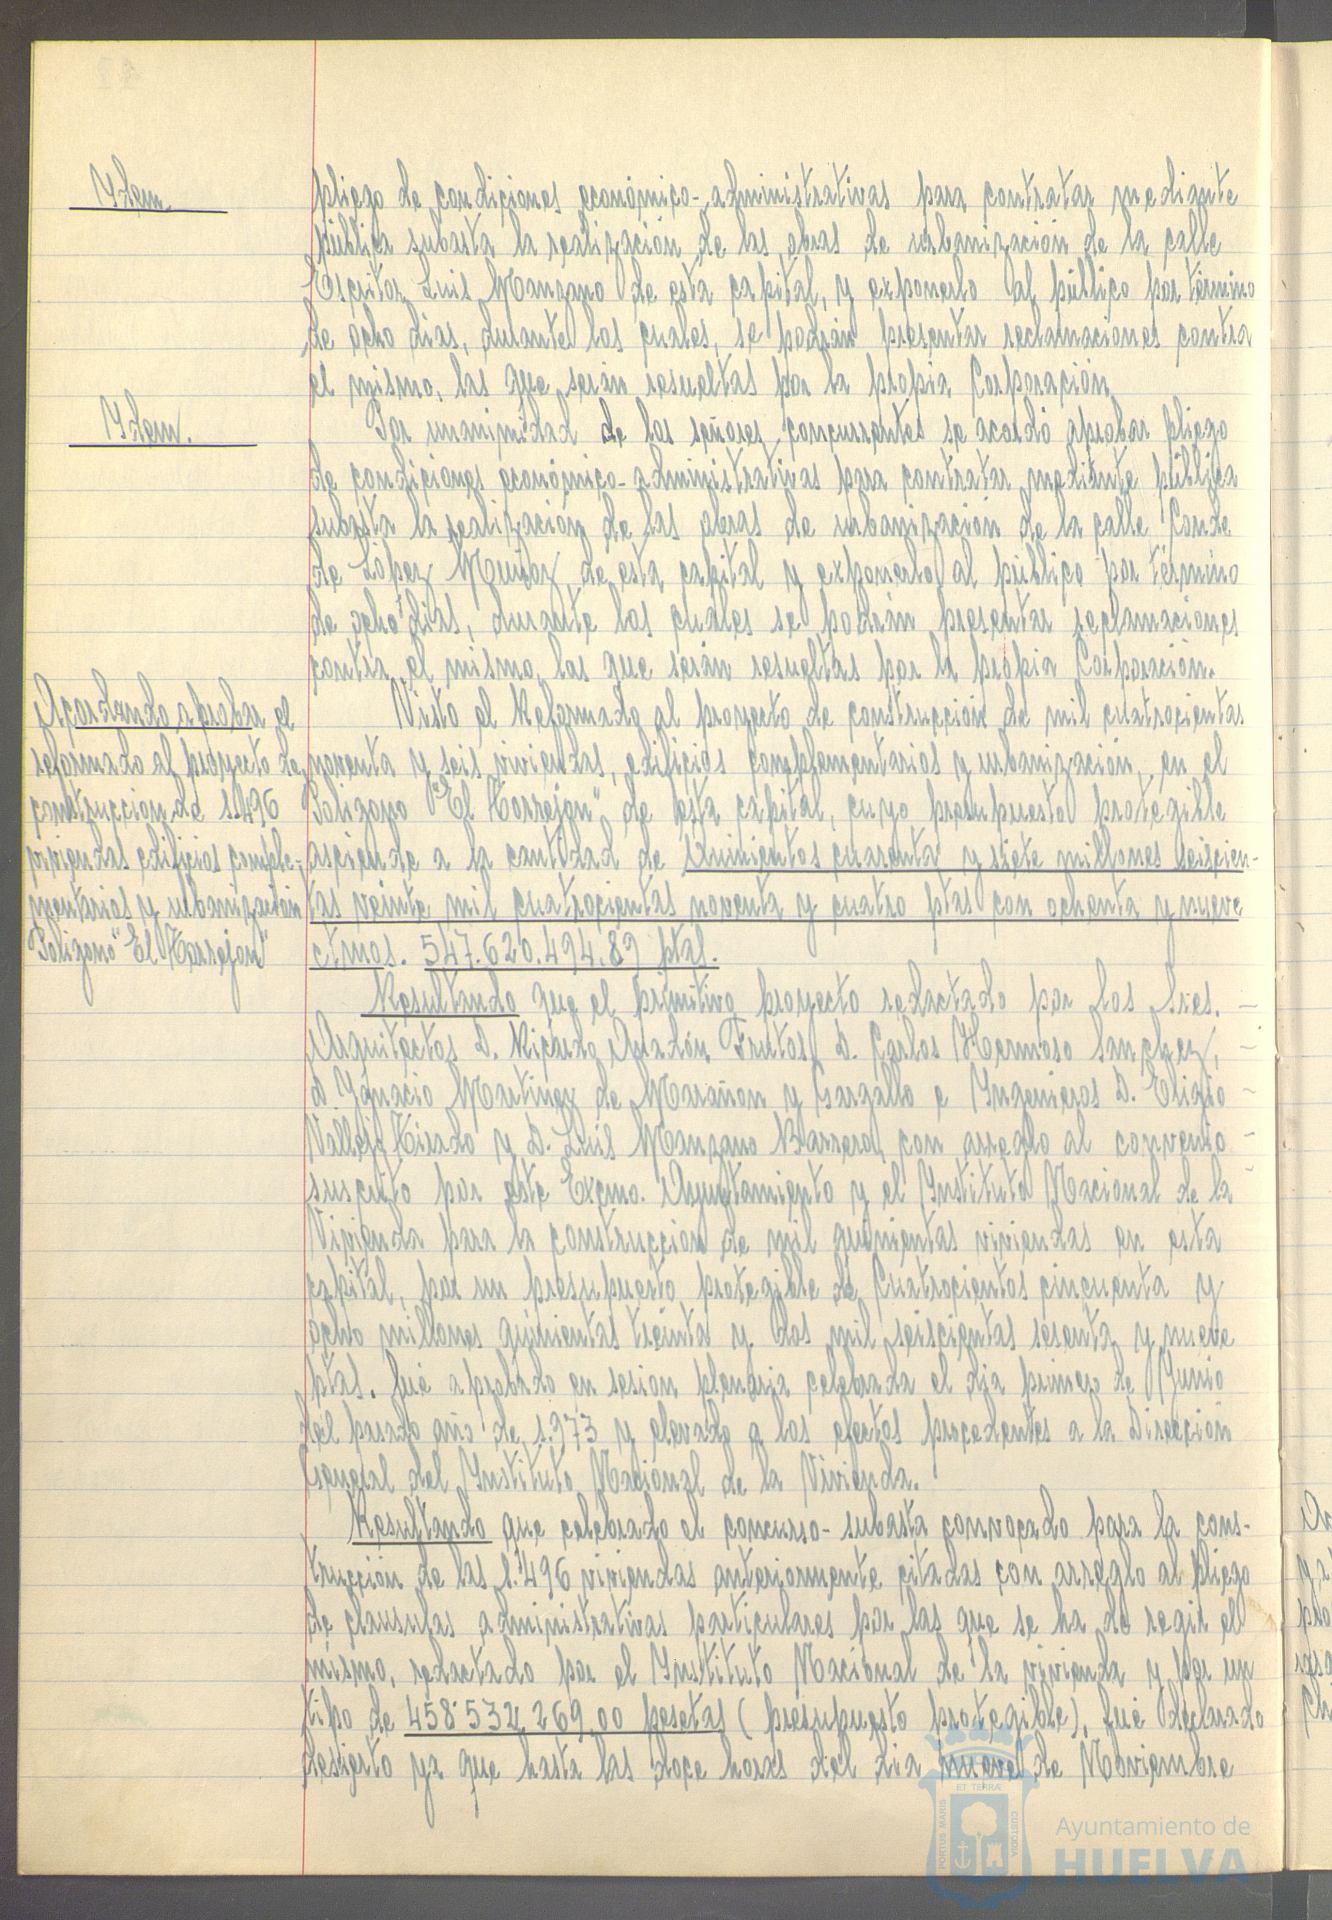 Ydem.
pliego de condiciones económico-administrativas para contratar mediante
pública subasta la realización de las obras de urbanización de la calle
Escritor Luis Manzano de esta capital, y exponerlo al público por término
de ocho dias, durante los cuales, se podrán presentar reclamaciones contra
el mismo, las que serán resueltas por la propia Corporación.
Ydem.
Por unanimidad de los señores concurrentes se acordó aprobar pliego
de condiciones económico-administrativas para contratar mediante pública
subasta la realización de las obras de urbanización de la calle Conde
de López Muñoz, de esta capital y exponerlo al público por término
de ocho dias, durante los cuales se podrán presentar reclamaciones
contra el mismo, las que serán resueltas por la propia Corporación.
Acordando aprobar el
reformado al proyecto de
construccion de 1.496
viviendas edificios comple-
mentarios y urbanización
Poligono "El Torrejon"
Visto el Reformado al proyecto de construcción de mil cuatrocientas
noventa y seis viviendas, edificios complementarios y urbanización, en el
Poligono "El Torrejon" de esta capital, cuyo presupuesto protegible
asciende a la cantidad de Quinientos cuarenta y siete millones seiscien-
tas veinte mil cuatrocientas noventa y cuatro ptas con ochenta y nueve
ctmos. 547.620.494,89 ptas.
Resultando que el primitivo proyecto redactado por los Sres.
Arquitectos D. Ricardo Anadón Frutos, D. Carlos Hermoso Sanchez,
D. Ygnacio Martinez de Marañon y Gargallo e Yngenieros D. Eligio
Vallejo Tirado y D. Luis Manzano Barrero, con arreglo al convenio
suscrito por este Excmo. Ayuntamiento y el Ynstituto Nacional de la
Vivienda para la construcción de mil quinientas viviendas en esta
capital, por un presupuesto protegible de Cuatrocientos cincuenta y
ocho millones quinientas treinta y dos mil seiscientas sesenta y nueve
ptas. fué aprobado en sesion plenaria celebrada el dia primero de Junio
del pasado año de 1.973 y elevado a los efectos procedentes a la Dirección
General del Ynstituto Nacional de la Vivienda.
Resultando que celebrado el concurso-subasta convocado para la cons-
trucción de las 1.496 viviendas anteriormente citadas con arreglo al pliego
de clausulas administrativas particulares por las que se ha de regir el
mismo, redactado por el Ynstituto Nacional de la vivienda y por un
tipo de 458.532.269,00 pesetas (presupuesto protegible), fué declarado
desierto ya que hasta las doce horas del dia nueve de Noviembre
PORTUS MARIS
ET TERRÆ
CUSTODIA
Ayuntamiento de
HUELVA